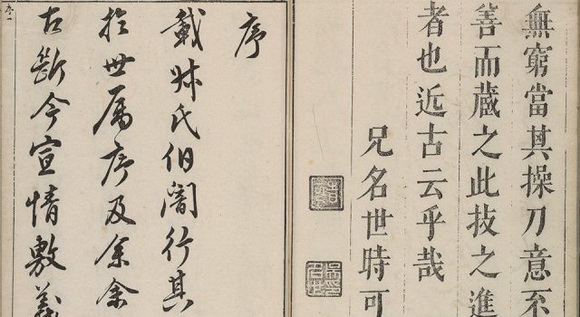 無窮當其操刀意不
善而蔵之此技之進
者也近古云乎哉
兄名世時可
序
戴氏伯闇行其
扵世屬序及余余
古斷今宣情敷